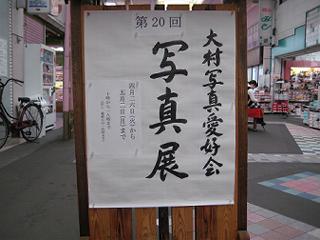 第20回
大村写真愛好会
写真展
四月二六日(火)から
五月二日(月)まで